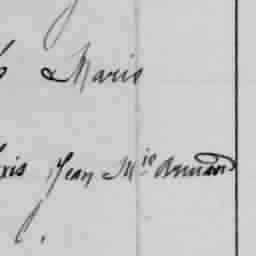 & Maris
xis Jean M^ie Armand